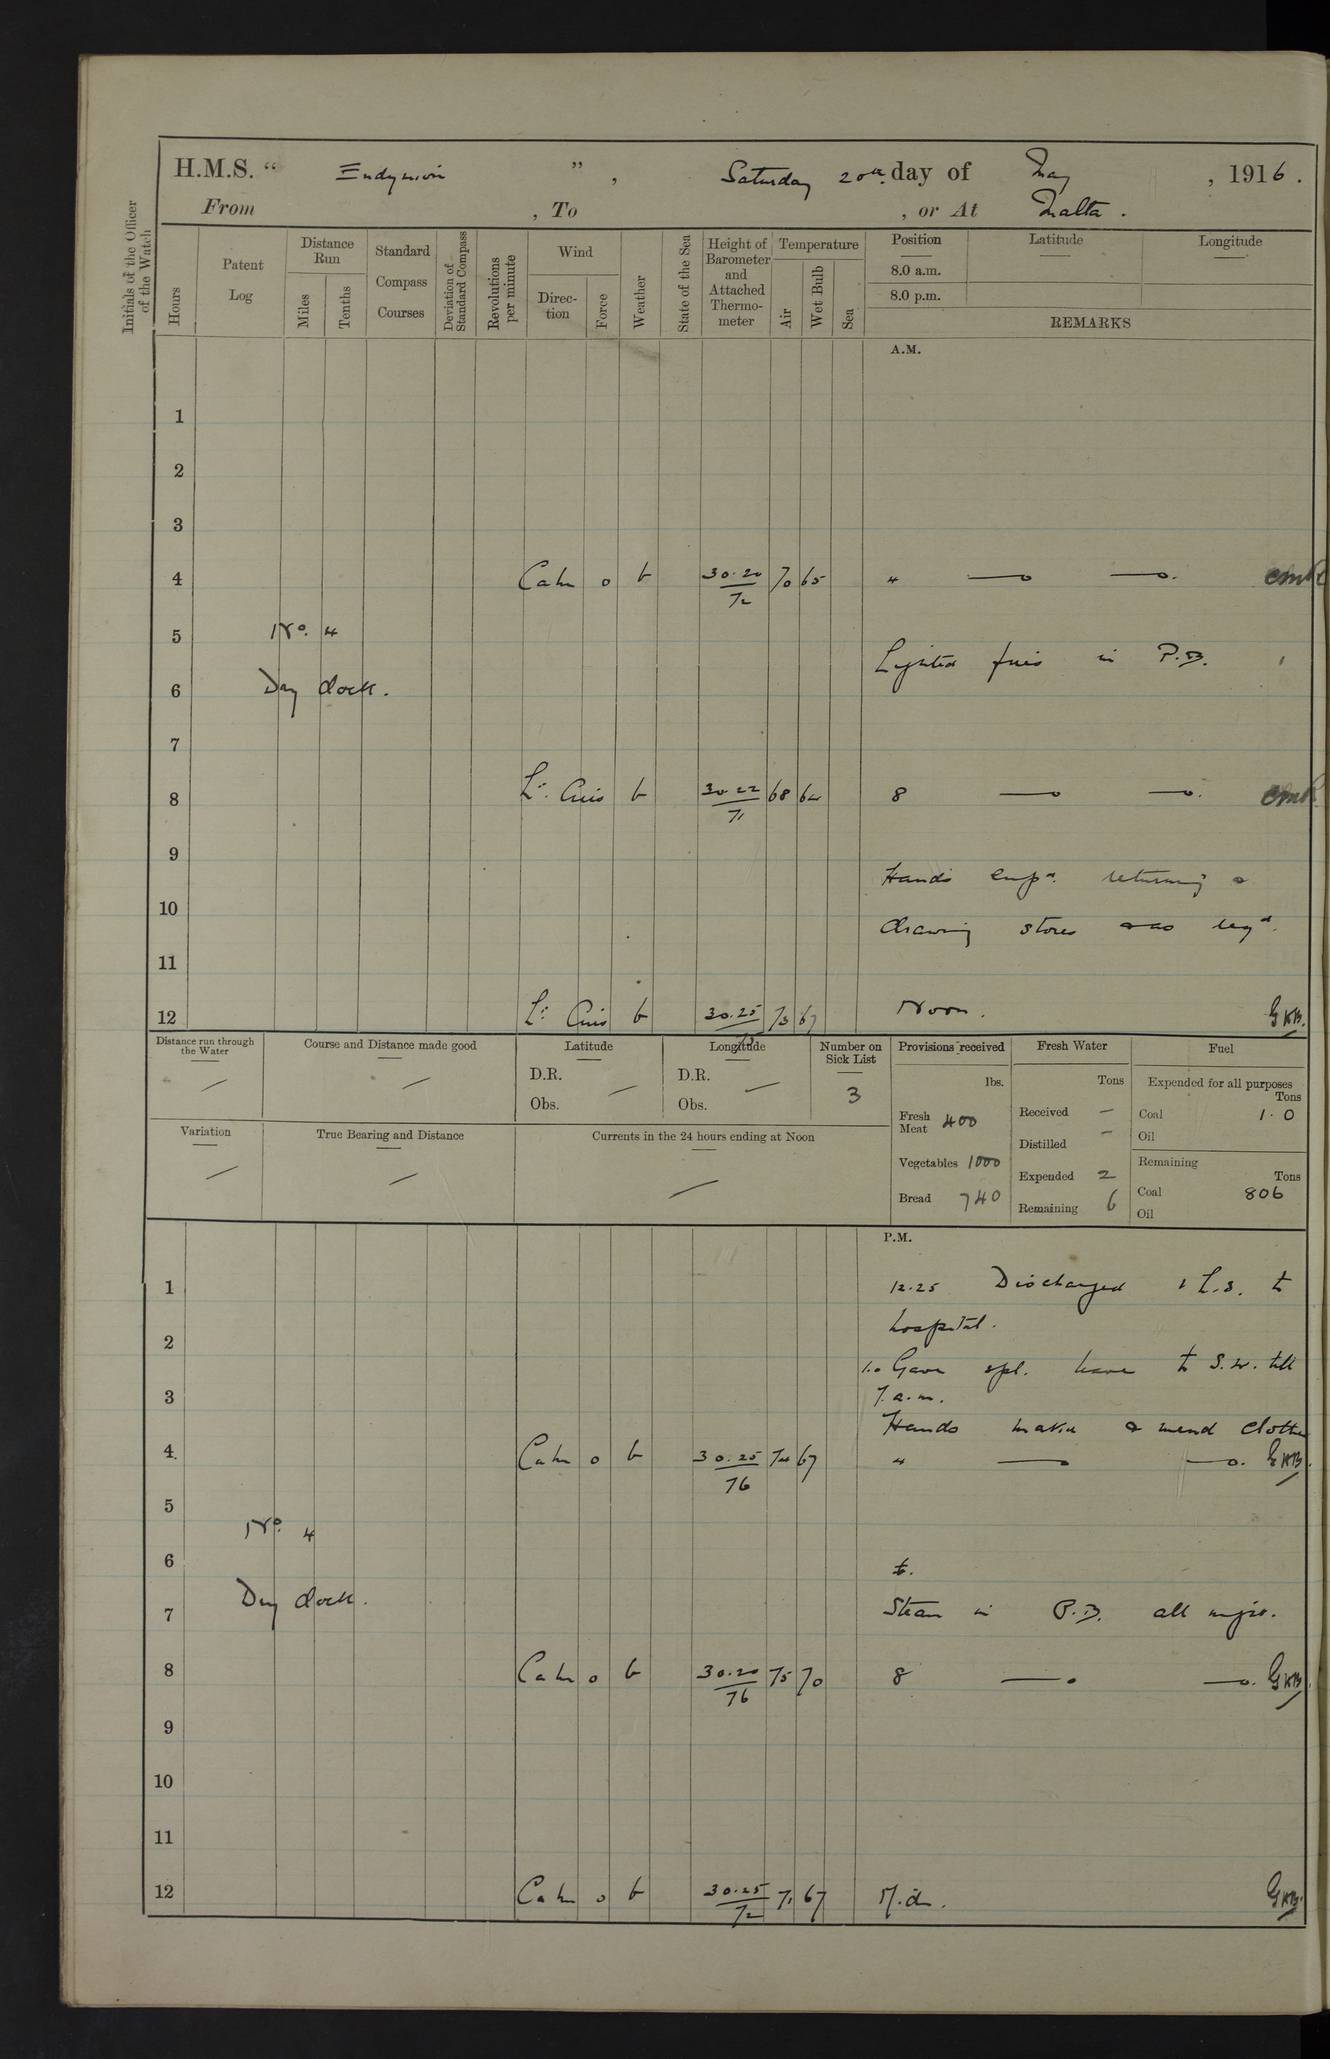 H.M.S. “ Endymion ” , Saturday 20th day of May , 1916.
From , To , or At Malta.
Initials of the Officer of the Watch
Hours
Patent Log
Distance Run
Miles
Tenths
Standard Compass Courses
Deviation of Standard Compass
Revolutions per minute
Wind
Direc-tion
Force
Weather
State of the Sea
Height of Barometer and Attached Thermo-meter
Temperature
Air
Wet Bulb
Sea
Position Latitude Longitude
8.0 a.m.
8.0 p.m.
REMARKS
A.M.
1
2
3
4 Calm 0 b 30.20/72 70 65 " —o —o.
5 No. 4
Lighted fires in P.B.
6 Dry dock.
7
8 Lt. Airs b 30.22/71 68 64 8 —o —o.
9
Hands emp'd. returning &
10
drawing stores as req'd.
11
12 Lt. Airs b 30.25 73 67 Noon. GKB.
Distance run through the Water —
Course and Distance made good —
Latitude
D.R. —
Obs.
Longitude
D.R. —
Obs.
Number on Sick List
3
Variation —
True Bearing and Distance —
Currents in the 24 hours ending at Noon —
Provisions received
lbs.
Fresh Meat 400
Vegetables 1000
Bread 740
Fresh Water
Tons
Received —
Distilled —
Expended 2
Remaining 6
Fuel
Expended for all purposes
Tons
Coal 1.0
Oil
Remaining
Tons
Coal 806
Oil
P.M.
1 12.25 Discharged 1 L.S. to
hospital.
2
1.0 Gave spl. leave to S.W. till
3 7. a.m.
Hands make & mend clothes
4 Calm 0 b 30.25/76 74 67 " —o —o. GKB.
5
No. 4
6 t.
7 Dry dock. Steam in P.B. all night.
8 Calm 0 b 30.20/76 75 70 8 —o —o. GKB.
9
10
11
12 Calm 0 b 30.25/72 71 67 M.d. GKB.